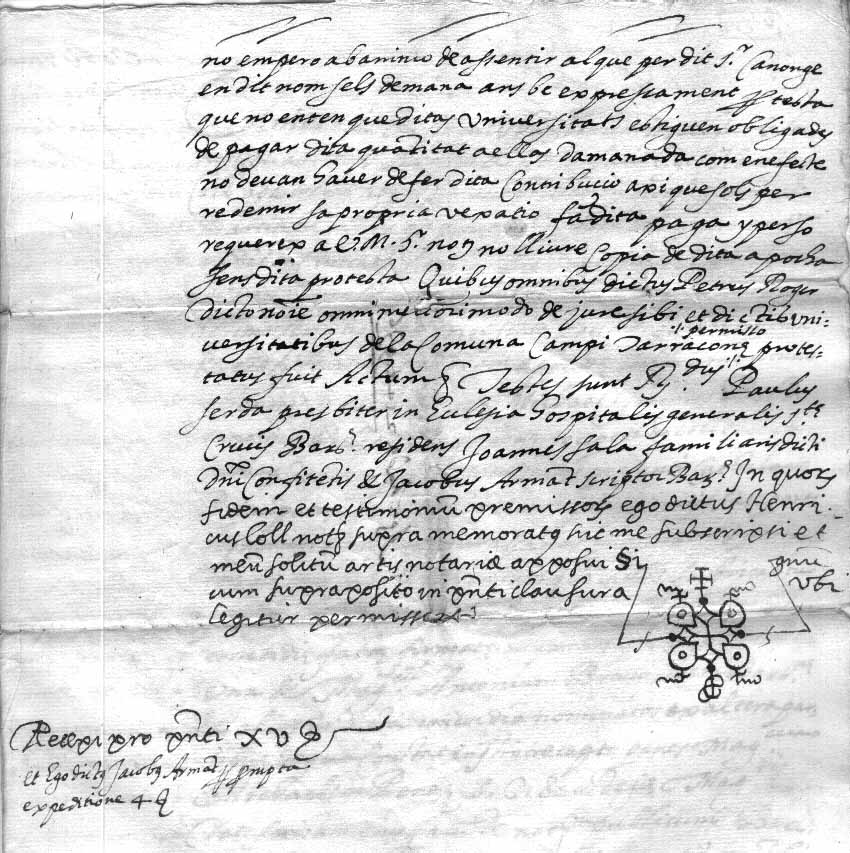 no empero ab animo de assentir al que per dit S.r Canonge
en dit nom sels demana ans be expressament protesta
que no enten que ditas Universitats estiguen obligades
de pagar dita quātitat a ellas damanada com en efecte
no devan haver de fer dita Contribucio axi que sols per
redemir sa propria vexatio fa dita paga y perso
requerex a V. M. S.r not no lliure Copia de dita apocha
sens dita protesta Quibus omnibus dictus Petrus Roger
dicto noīe omni meliori modo de jure sibi et dictis Uni-
versitatibus de la Comuna Campi Tarracong protes-
:/: permisso
tatus fuit Actum Testes sunt Rdus :/: Paulus
serda presbiter in Eclesia hospitalis generalis s.te
Crucis Bar.e residens Joannes sala familiaris dicti
Dñi Confitentis & Jacobus Armāt scriptor Bar.e In quors
fidem et testimoniū premissors ego dictus Henri-
cus Coll notg supra memoratg hic me subscripsi et
meū solitū artis notariæ apposui Si gnū
cum supraposito in pñti clausura Ubi
legitur permisso
Recepi pro pñti XV
et Ego dictg Jacobg Armāt prompta
expeditione 4